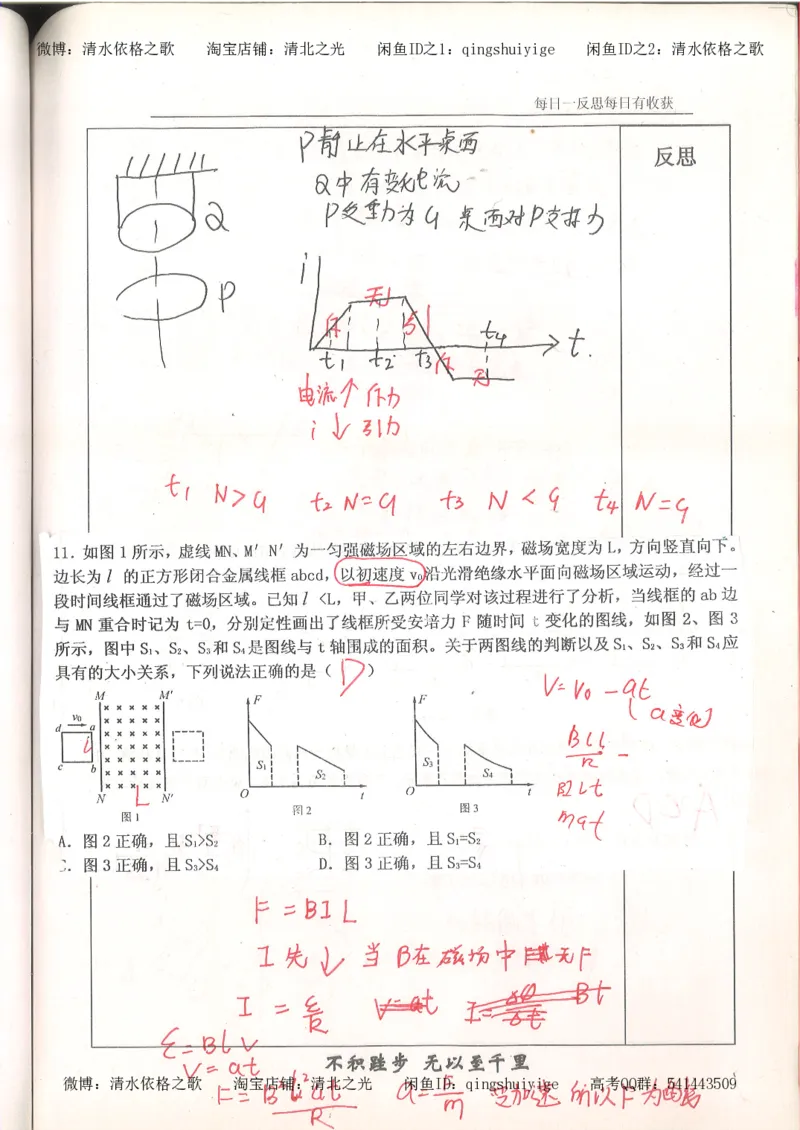 微博：清水依格之歌 淘宝店铺：清北之光 闲鱼ID之1：qingshuiyige 闲鱼ID之2：清水依格之歌
每日一反思每日有收获
反思
P静止在水平桌面
Q中有变化电流
P受重力为G 桌面对P支持力
Q
P
i
斥 无 引
t₁ t₂ t₃ 斥 无 t₄ t.
电流↑ 斥力
i ↓ 引力
t₁ N>G t₂ N=G t₃ N<G t₄ N=G
11．如图1所示，虚线MN、M′N′为一匀强磁场区域的左右边界，磁场宽度为L，方向竖直向下。
边长为l的正方形闭合金属线框abcd，以初速度v₀沿光滑绝缘水平面向磁场区域运动，经过一
段时间线框通过了磁场区域。已知l<L，甲、乙两位同学对该过程进行了分析，当线框的ab边
与MN重合时记为t=0，分别定性画出了线框所受安培力F随时间t变化的图线，如图2、图3
所示，图中S₁、S₂、S₃和S₄是图线与t轴围成的面积。关于两图线的判断以及S₁、S₂、S₃和S₄应
具有的大小关系，下列说法正确的是（ D ）
V=V₀-at
(a变化)
M M′
d v₀ a
c b
l
N L N′
图1
F
S₁ S₂
O t
图2
F
S₃ S₄
O t
图3
BLl
R
BILt
mat
A．图2正确，且S₁>S₂ B．图2正确，且S₁=S₂
C．图3正确，且S₃>S₄ D．图3正确，且S₃=S₄
F=BIL
I先↓ 当B在磁场中 无F
I=ε/R V=at I=ΔQ/Δt Bt
ε=BLV
V=at
不积跬步 无以至千里
微博：清水依格之歌 淘宝店铺：清北之光 闲鱼ID：qingshuiyige 高考QQ群：541443509
F=B²L²at/R a=F/m 变加速 所以F为曲线